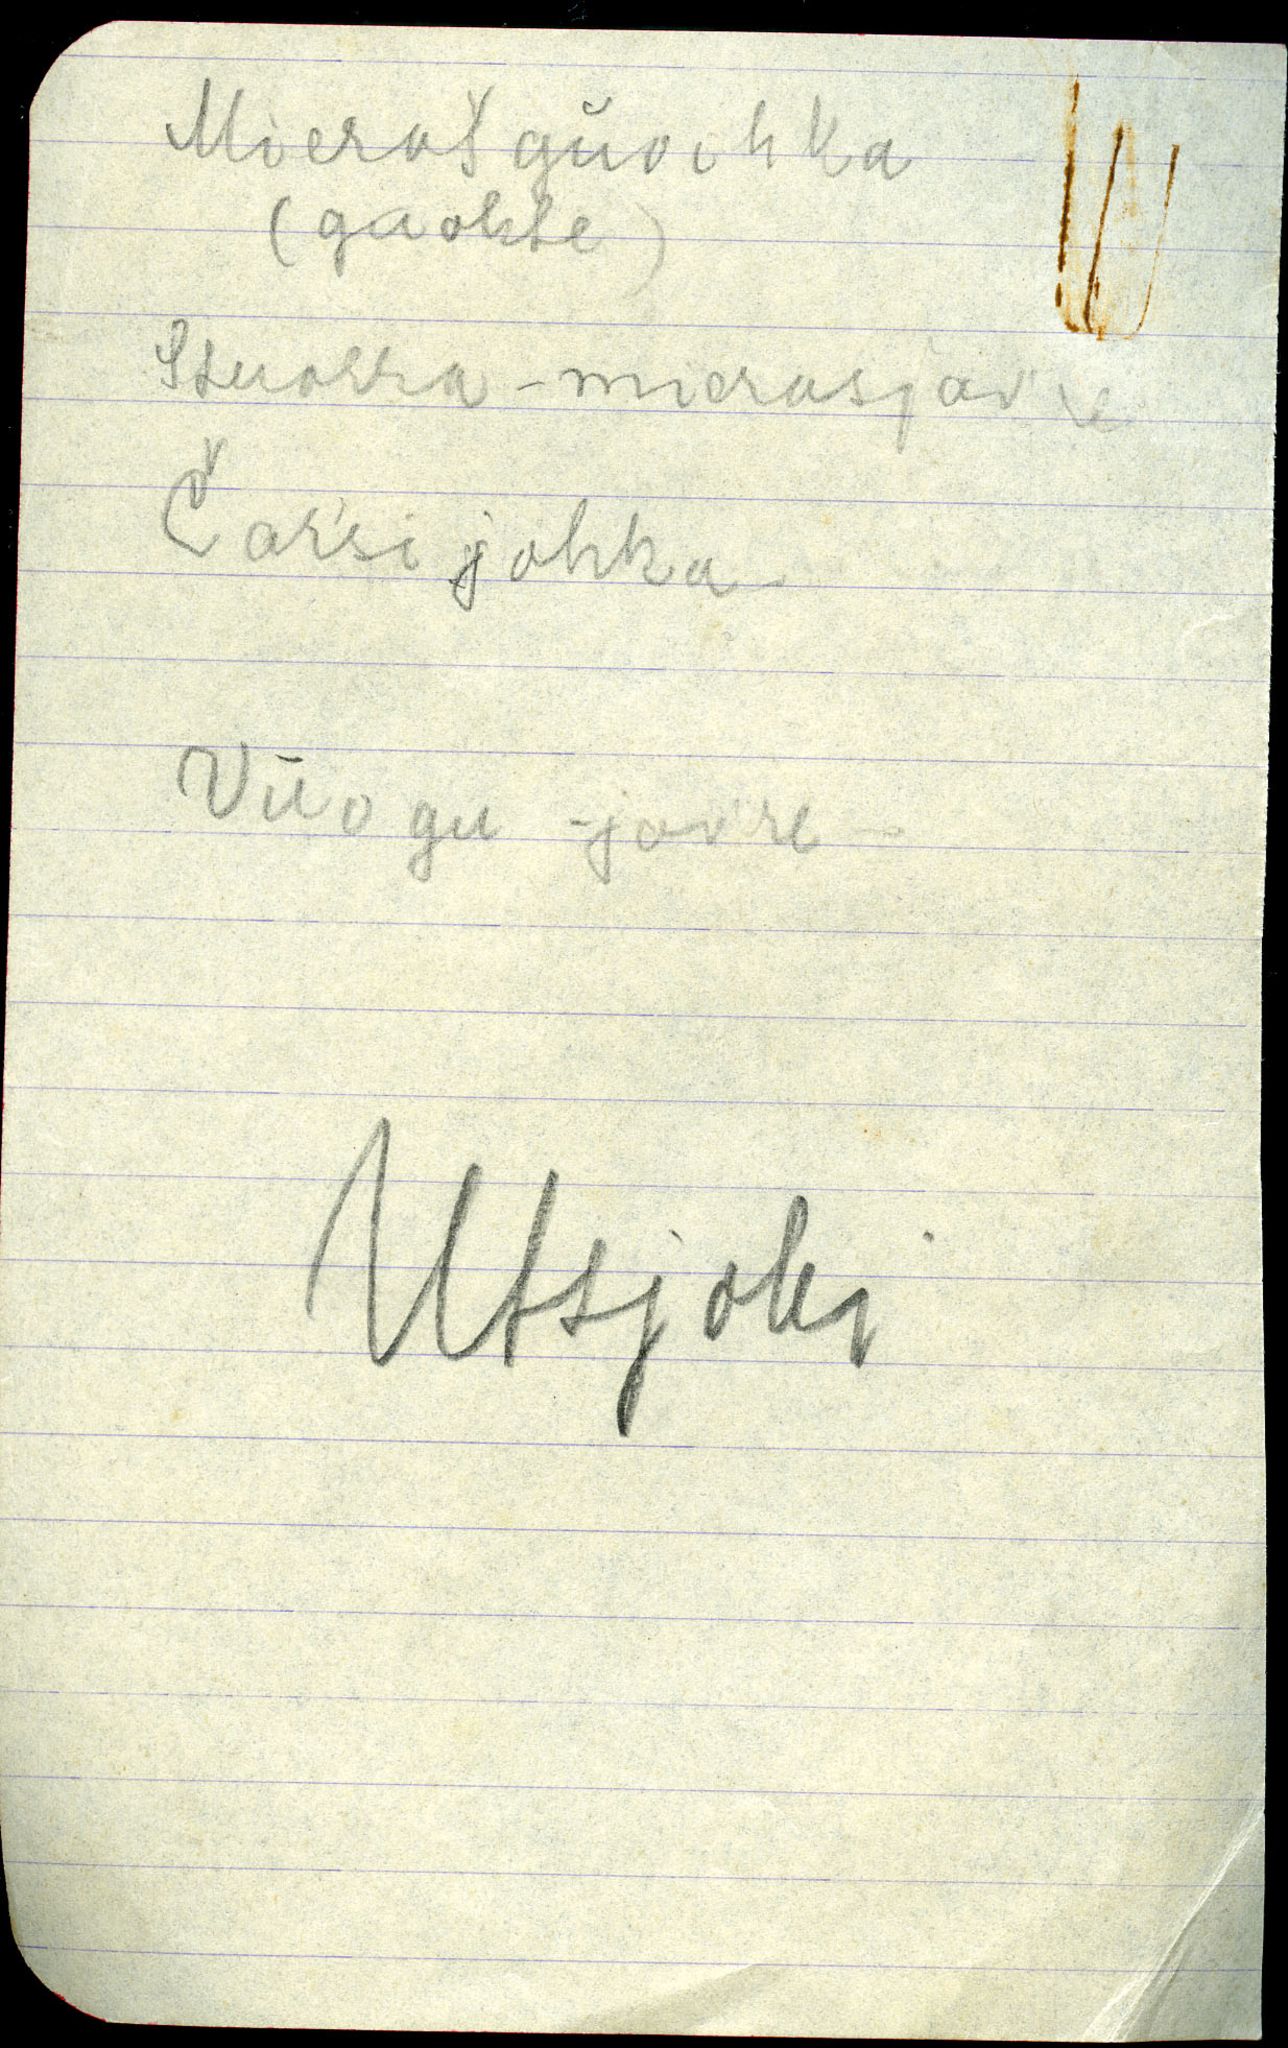 Mieraš gūoihka
(guokte)
Stuorra-mierasjav're
Čars'i johka
Vūogu-jav're
Utsjoki